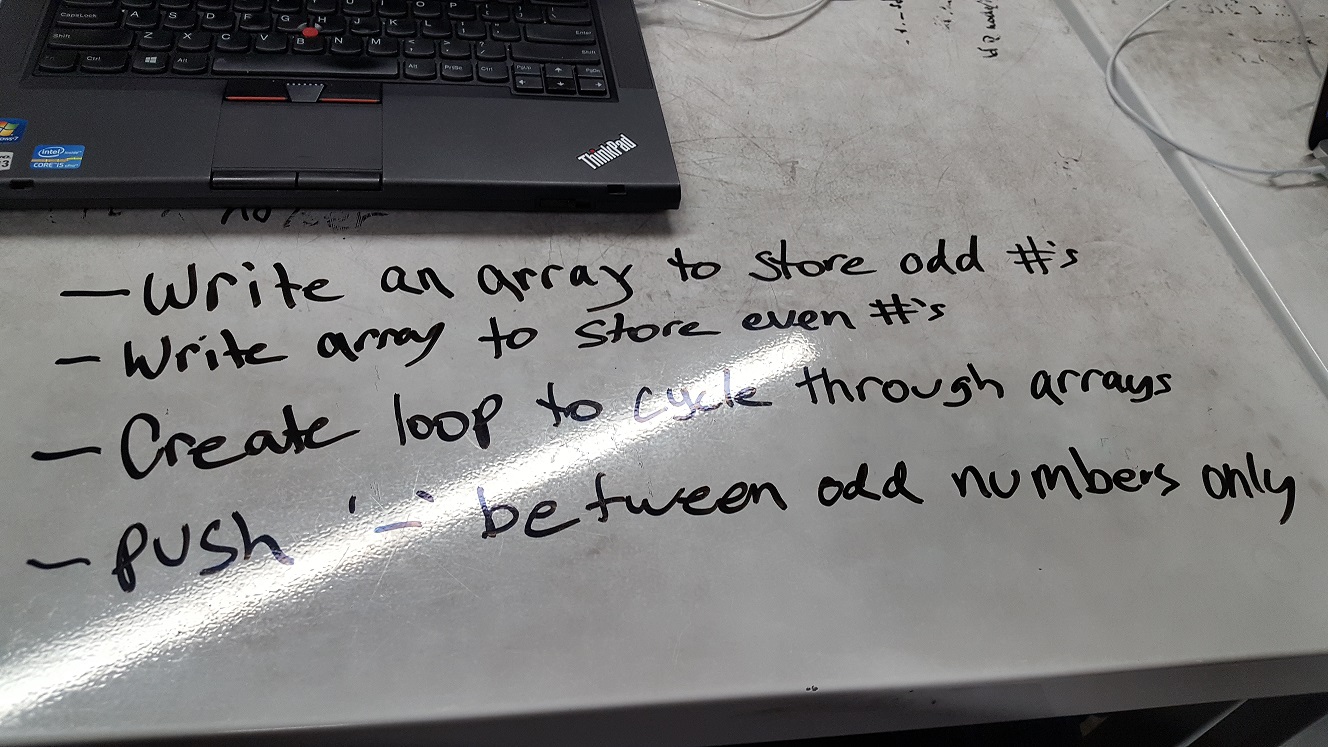 CapsLock A S D F G H J K L
Shift Z X C V B N M Shift
Ctrl Alt Alt PrtSc Ctrl PgUp PgDn
Enter
intel inside
CORE i5 vPro
ThinkPad
– Write an array to store odd #'s
– Write array to store even #'s
– Create loop to cycle through arrays
– push '-' between odd numbers only